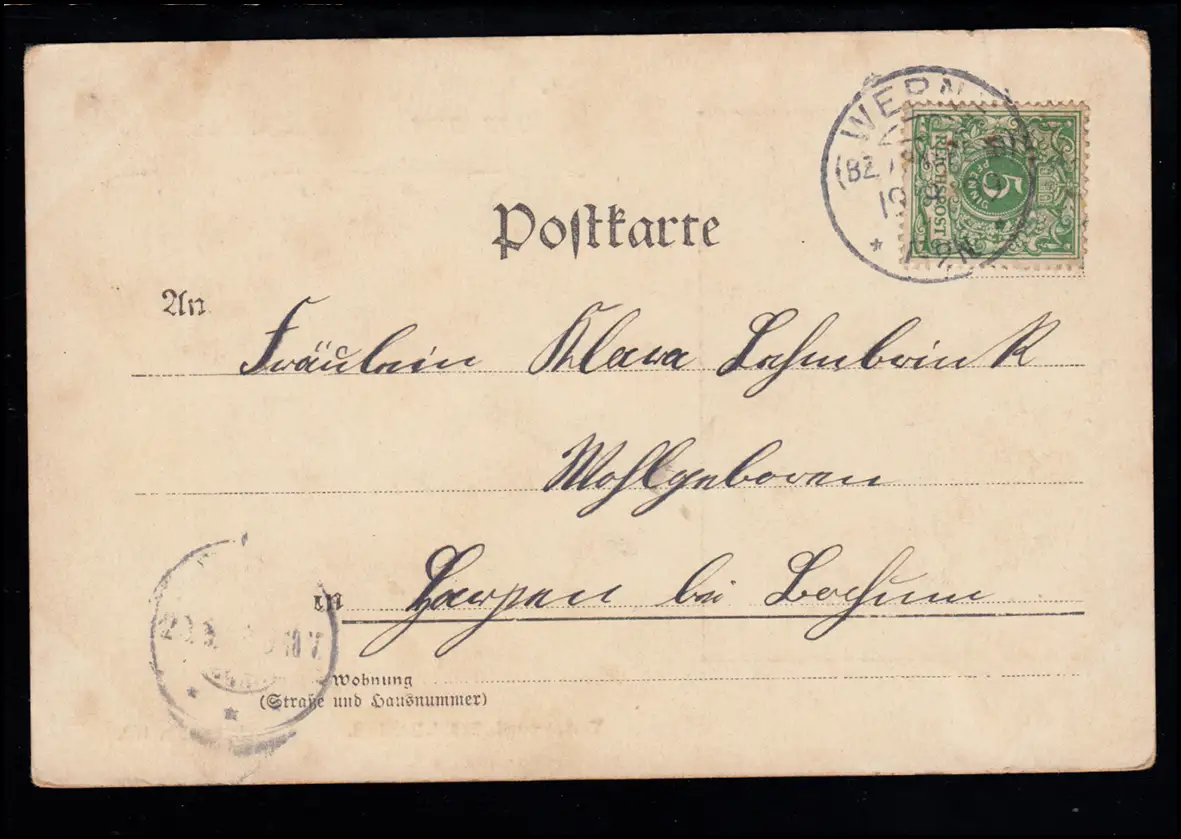 WERNE
(BZ.
REICHSPOST
5
PFENNIG
Postkarte
An
Fräulein Klara Lehmbrink
Wohlgeboren
in Harpen bei Bochum
Wohnung
(Straße und Hausnummer)